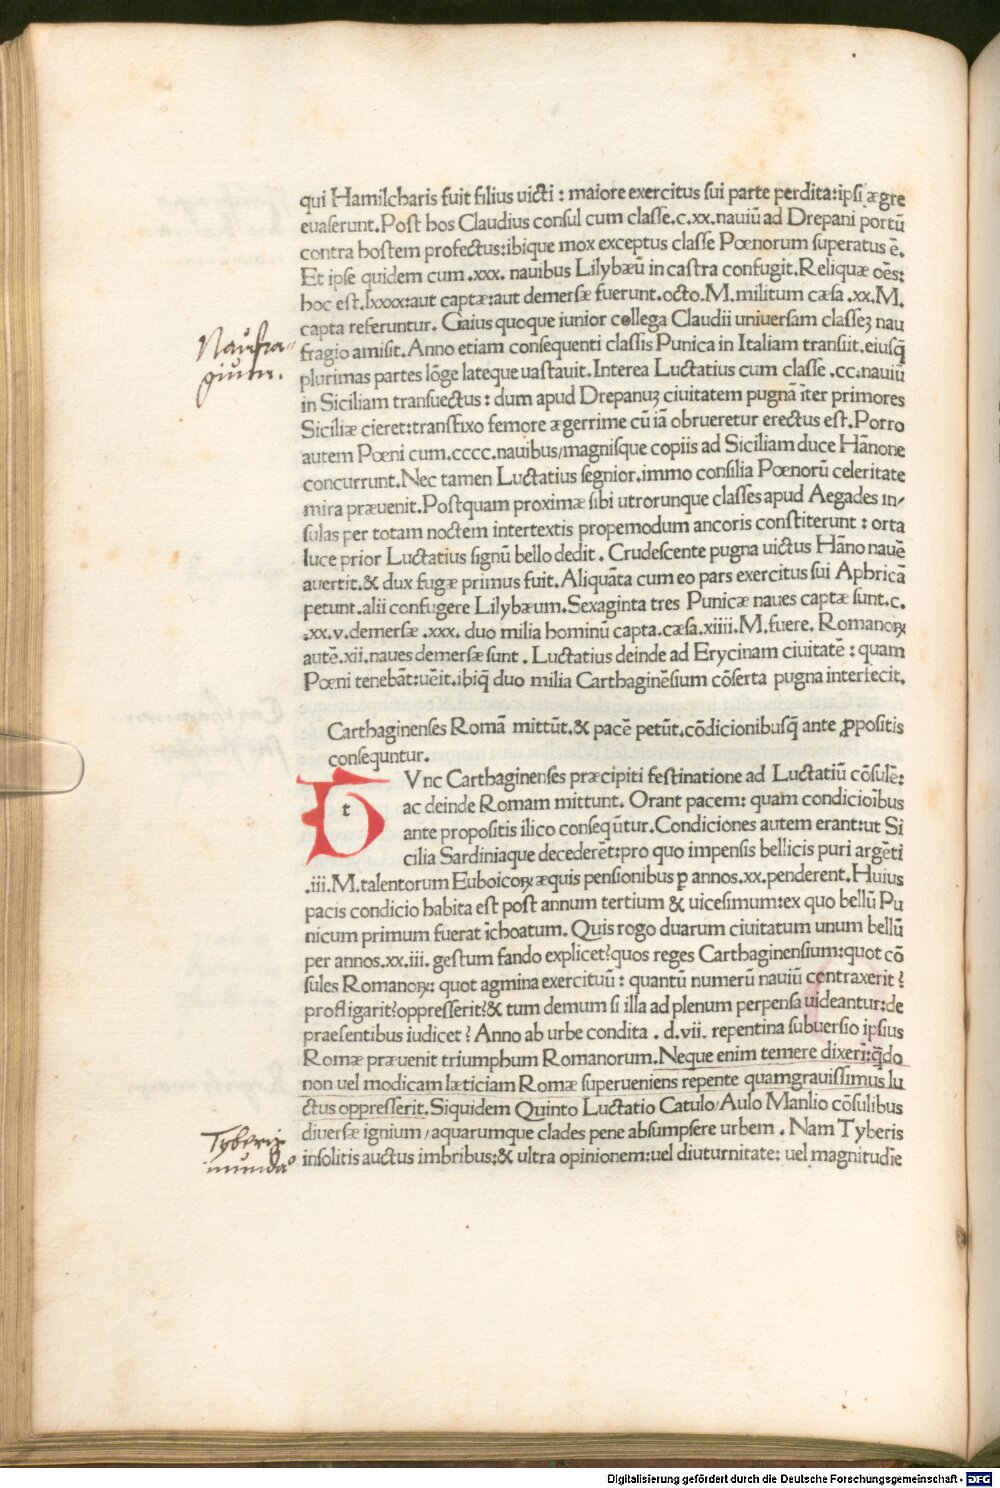 qui Hamilcharis fuit filius uicti : maiore exercitus sui parte perdita:ipsi ægre
euaserunt.Post hos Claudius consul cum classe.c.xx.nauiū ad Drepani portū
contra hostem profectus:ibique mox exceptus classe Pœnorum superatus ē.
Et ipse quidem cum .xxx. nauibus Lilybæū in castra confugit.Reliquæ oēs:
hoc est.lxxxx:aut captæ:aut demersæ fuerunt.octo.M.militum cæsa .xx.M.
capta referuntur. Gaius quoque iunior collega Claudii uniuersam classeꝫ nau
Naufra=
fragio amisit.Anno etiam consequenti classis Punica in Italiam transiit.eiusq̃
gium.
plurimas partes lōge lateque uastauit.Interea Luctatius cum classe .cc.nauiū
in Siciliam transuectus : dum apud Drepanuꝫ ciuitatem pugnā īter primores
Siciliæ cieret:transfixo femore ægerrime cū iā obrueretur erectus est.Porro
autem Pœni cum.cccc.nauibus/magnisque copiis ad Siciliam duce Hānone
concurrunt.Nec tamen Luctatius segnior.immo consilia Pœnorū celeritate
mira præuenit.Postquam proximæ sibi utrorunque classes apud Aegades in/
sulas per totam noctem intertextis propemodum ancoris constiterunt : orta
luce prior Luctatius signū bello dedit . Crudescente pugna uictus Hāno nauē
auertit.& dux fugæ primus fuit.Aliquāta cum eo pars exercitus sui Aphricā
petunt.alii confugere Lilybæum.Sexaginta tres Punicæ naues captæ sunt.c.
.xx.v.demersæ .xxx. duo milia hominū capta.cæsa.xiiii.M.fuere. Romanoꝝ
autē.xii.naues demersæ sunt . Luctatius deinde ad Erycinam ciuitatē : quam
Pœni tenebāt:uēit.ibiq̃ duo milia Carthaginēsium cōserta pugna interfecit.
Carthaginenses Romā mittūt.& pacē petūt.cōdicionibusq̃ ante ꝓpositis
consequntur.
t Vnc Carthaginenses præcipiti festinatione ad Luctatiū cōsulē:
ac deinde Romam mittunt. Orant pacem: quam condicioībus
ante propositis ilico conseqūtur.Condiciones autem erant:ut Si
cilia Sardiniaque decederēt:pro quo impensis bellicis puri argēti
.iii.M.talentorum Euboicoꝝ æquis pensionibus ꝑ annos.xx.penderent.Huius
pacis condicio habita est post annum tertium & uicesimum:ex quo bellū Pu
nicum primum fuerat īchoatum. Quis rogo duarum ciuitatum unum bellū
per annos.xx.iii. gestum fando explicet?quos reges Carthaginensium:quot cō
sules Romanoꝝ: quot agmina exercituū : quantū numerū nauiū contraxerit ?
profligarit?oppresserit?& tum demum si illa ad plenum perpensa uideantur:de
praesentibus iudicet ? Anno ab urbe condita . d.vii. repentina subuersio ipsius
Romæ præuenit triumphum Romanorum.Neque enim temere dixeri:q̃do
non uel modicam lætitiam Romæ superueniens repente quamgrauissimus lu
ctus oppresserit.Siquidem Quinto Luctatio Catulo/Aulo Manlio cōsulibus
Tyberis
diuersæ ignium/aquarumque clades pene absumpsere urbem . Nam Tyberis
inundaº
insolitis auctus imbribus:& ultra opinionem:uel diuturnitate: uel magnitudīe